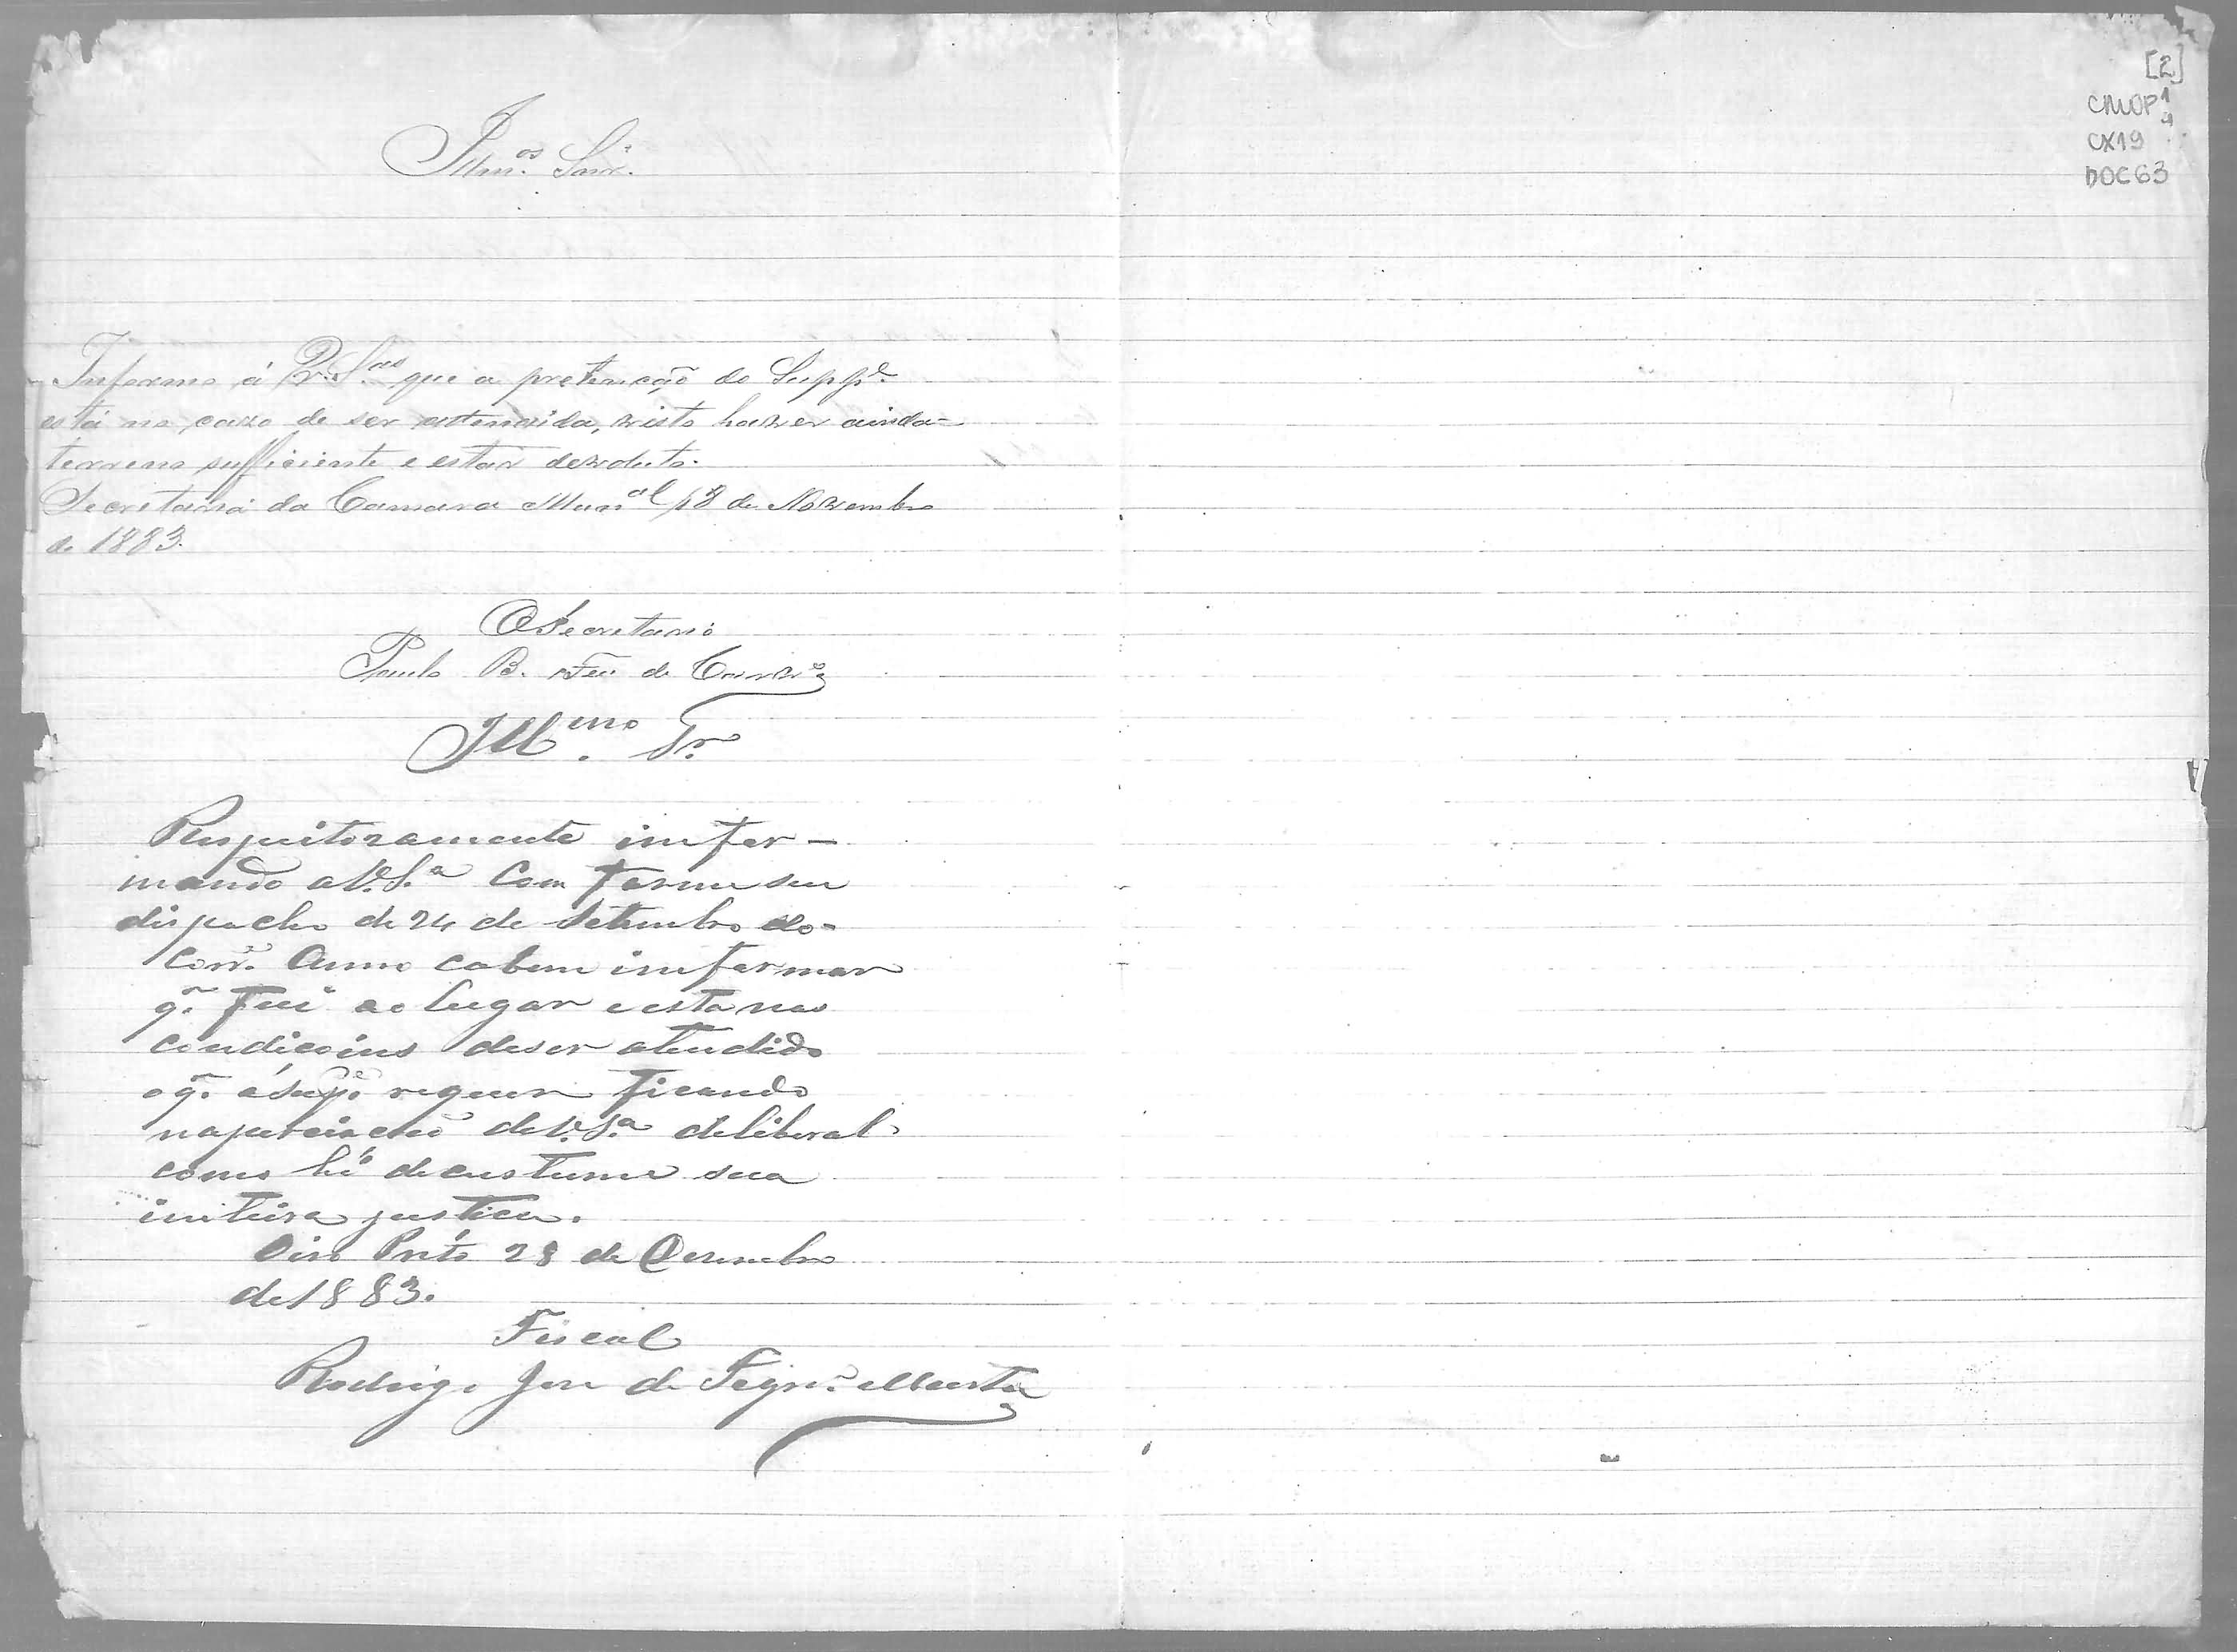 [2]
CMOP 1
4
CX19
DOC 63
Illm.os Snr.
Informo á V. S.as que a pretenção do Supp.e
está no cazo de ser attendida, visto haver ainda
terreno sufficiente e estar devoluto.
Secretaria da Camara Mun.al 18 de Novembro
de 1883.
O Secretario
Paulo B. de
Ill.mo Sr.
Respeitozamente infor-
mando a V. S.a Com forme seu
dispacho de 24 de Setembro do
Corr.e Anno cabeme informar
q. Fui ao lugar e esta nas
condicoins deser atendido
o q. o Sup.e requer Ficando
na de V. S.a deliberal
como hé decustume sua
inteira justica.
Oiro Preto 28 de Dezembro
de 1883.
Fiscal
Rodrigo Jose de Figr.do Murta